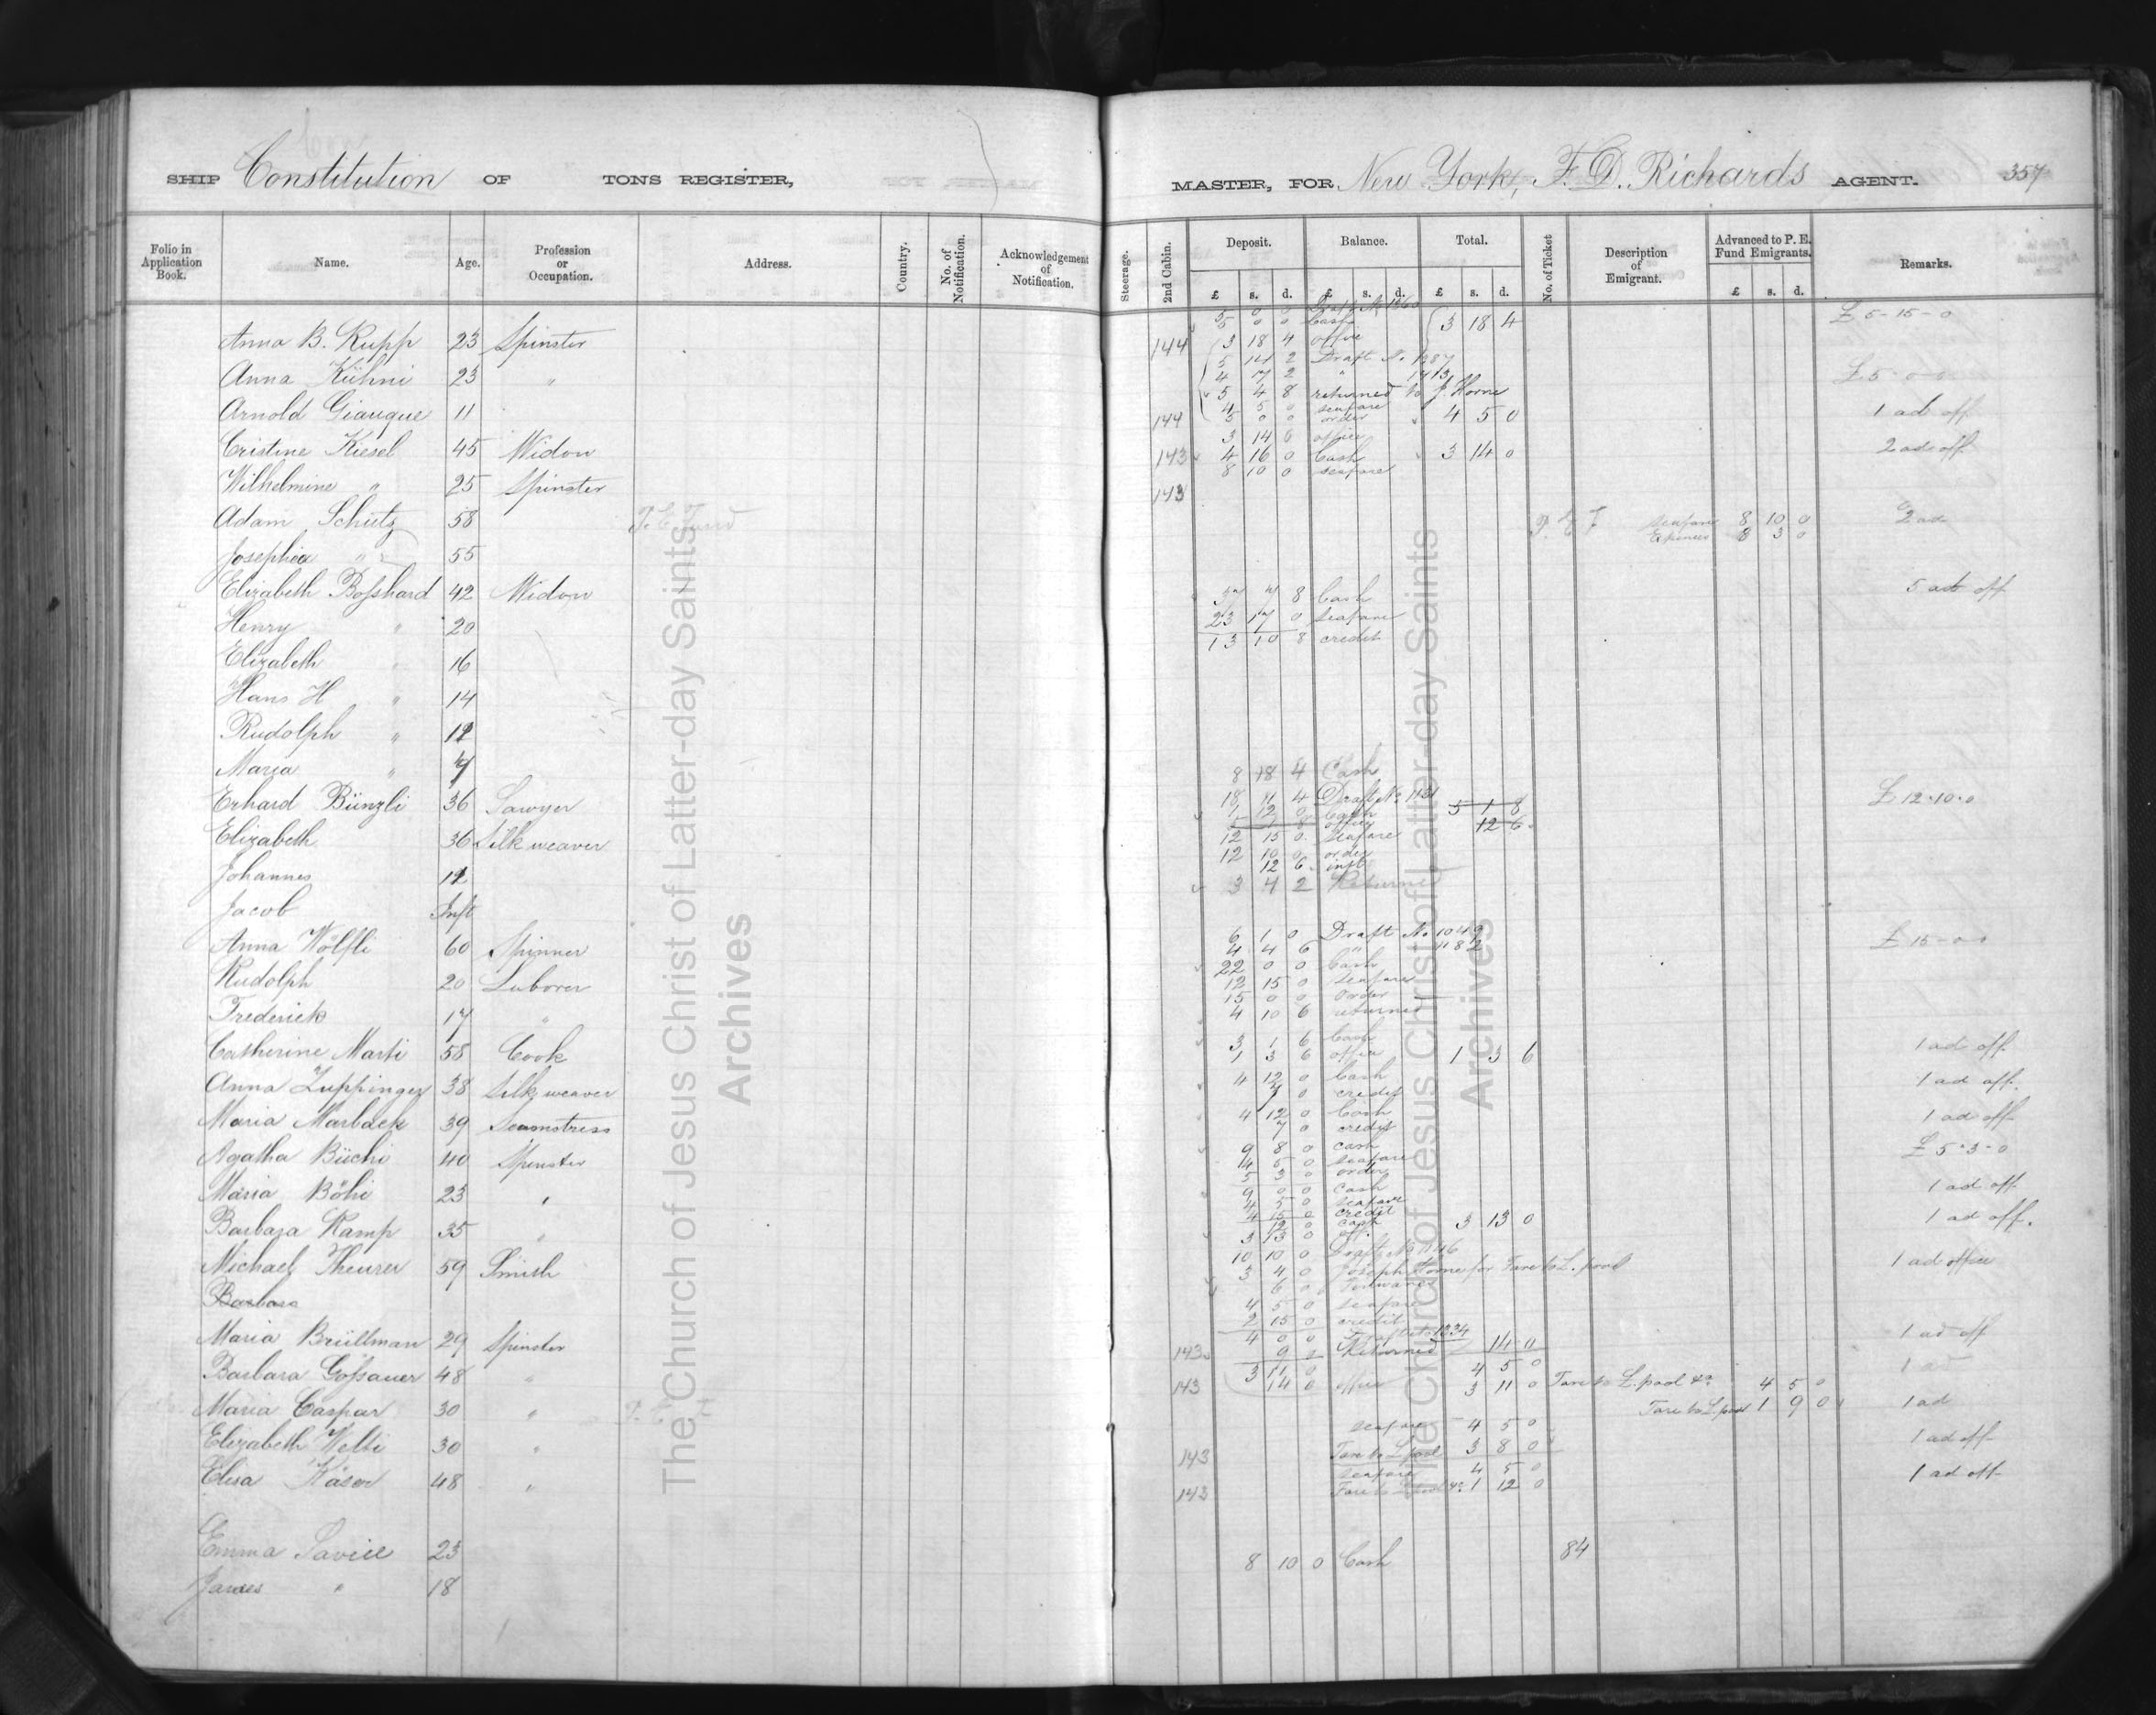 SHIP Constitution OF TONS REGISTER,
MASTER, FOR New York, F. D. Richards AGENT. 357
Folio in Application Book. Name. Age. Profession or Occupation. Address. Country. No. of Notification. Acknowledgement of Notification.
Steerage. 2nd Cabin. Deposit. Balance. Total. No. of Ticket Description of Emigrant. Advanced to P. E. Fund Emigrants. Remarks.
£ s. d. £ s. d. £ s. d. £ s. d.
Anna B. Rupp 23 Spinster
Anna Kühni 23 "
Arnold Giauque 11
Cristine Kiesel 45 Widow
Wilhelmine " 25 Spinster
Adam Schütz 58 P. E. Fund
Josephia " 55
Elizabeth Boſshard 42 Widow
Henry " 20
Elizabeth " 16
Hans H " 14
Rudolph "
Maria "
Erhard Bünzli 36 Sawyer
Elizabeth 36 Silk weaver
Johannes
Jacob Inft
Anna Wölfli 60 Spinner
Rudolph 20 Laborer
Frederick 17 "
Catherine Marti 58 Cook
Anna Zuppinger 38 Silk weaver
Maria Marback 39 Seamstress
Agatha Büchi 40 Spinster
Maria Böhi 23 "
Barbara Kamp 35 "
Michael Theurer 59 Smith
Barbara
Maria Brüllman 29 Spinster
Barbara Goſsauer 48 "
Maria Caspar 30 " P. E. F
Elizabeth Welti 30 "
Elisa Käser 48 "
Emma Savill 23
James " 18
£ 5-15-0
5 0 0 Cash 3 18 4
144 3 18 4 office
5 14 2 Draft No. 1387
4 7 2 " 1413
£ 5-0-0
5 4 8 returned to J. Horne
4 5 0 seafare
1 ad off
144 5 0 0 order 4 5 0
3 14 0 office
143 4 16 0 Cash 3 14 0 2 ad off
8 10 0 seafare
143
P. E. F. seafare 8 10 0 2 ad
Expenses 8 3 0
37 7 8 Cash 5 ad off
23 17 0 Seafare
13 10 8 credit
8 18 4 Cash
18 11 4 Draft No. 1131
£ 12-10-0
1 12 0 Cash 5 1 8
5 1 8 office 12 6
12 15 0 Seafare
12 10 0 order
12 6 inft
3 4 2 Returned
6 1 0 Draft No 1049
4 4 6 " 1182
£ 15-0-0
22 0 0 Cash
12 15 0 seafare
15 0 0 order
4 10 6 returned
3 1 6 Cash
1 3 6 office 1 3 6 1 ad off
4 12 0 Cash 1 ad off
7 0 credit
4 12 0 Cash 1 ad off
7 0 credit
9 8 0 cash £ 5-3-0
4 5 0 seafare
5 3 0 order
9 0 0 Cash 1 ad off
4 5 0 seafare
4 15 0 credit
12 0 cash 3 13 0 1 ad off.
3 13 0 off.
10 10 0 Draft No 1146
3 4 0 Joseph Horne for Fare to L.pool 1 ad office
6 0 Forward
4 5 0 seafare
2 15 0 credit
4 0 0 Draft No 1334 1 ad off
143 9 2 Returned
3 11 0 4 5 0 1 ad
143 14 0 office 3 11 0 Fare to L.pool &c 4 5 0
Fare to L.pool 1 9 0 1 ad
seafare 4 5 0
143 Fare to L.pool 3 8 0 1 ad off
seafare 4 5 0
143 Fare to L.pool &c 1 12 0 1 ad off
8 10 0 Cash 84
The Church of Jesus Christ of Latter-day Saints
Archives
The Church of Jesus Christ of Latter-day Saints
Archives